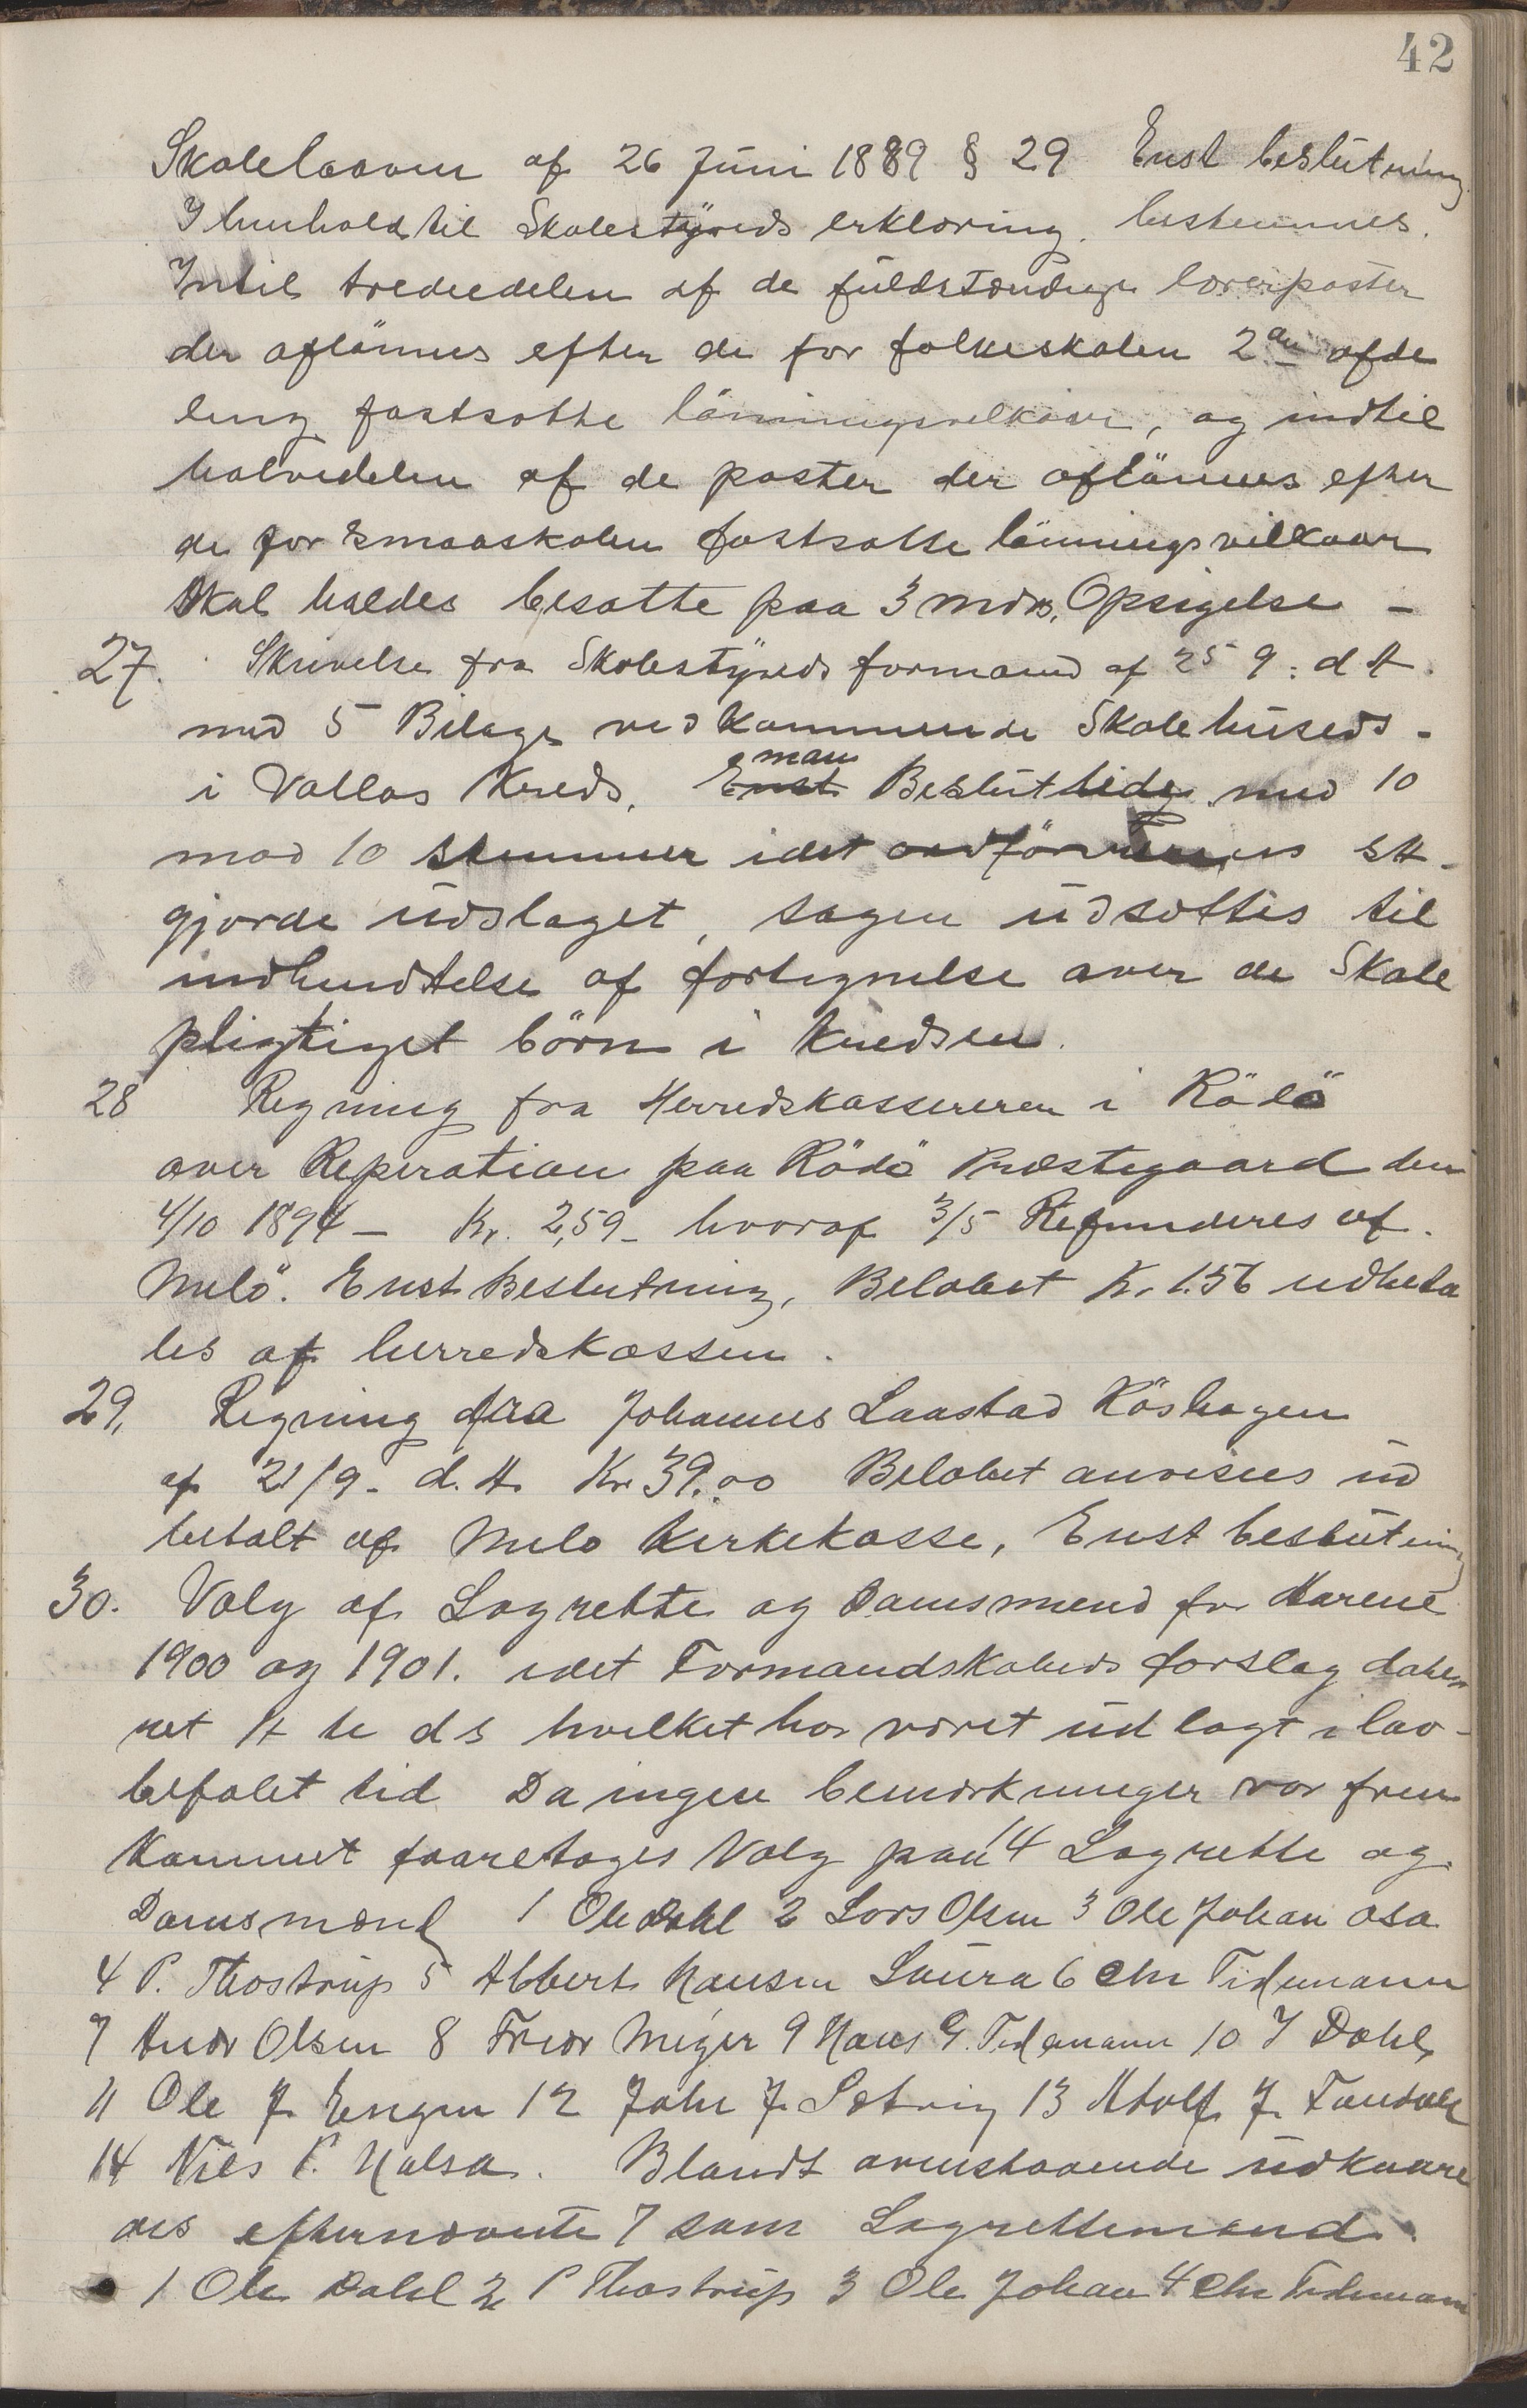 42
Skolelaaven af 26 Juni 1889 § 29 Enst beslutning
I henhold til Skolestyreds erklæring. bestemmes.
Intil trediedelen af de fuldstændige lærerposter
der aflönnes efter de for folkeskolen 2den afde
ling fastsatte lönningsvilkaar, og indtil
halvedelen af de poster der aflönnes efter
de for Smaaskolen fastsatte lönningsvilkaar
skal holdes besatte paa 3 mdrs, Opsigelse -
27. Skrivelse fra Skolestyreds formand af 25 9: d A.
med 5 Bilage vedkommende Skolehuseds -
man
i Vallas Kreds. Enst Beslut med 10
mod 10 stemmer idet ordförerens st-
gjorde udslaget, sagen udsættes til
indhendtelse af fortegnelse over de Skole
pligtiget börn i kredsen.
28 Regning fra Herredskassereren i Rödö
over Reperation paa Rödö Præstegaard den
4/10 1894 - Kr. 2,59 - hvoraf 3/5 Refunderes af.
Melö. Enst Beslutning, Beløbet Kr 1.56 udbeta
les af herredskassen.
29, Regning fra Johannes Laastad Röshagen
af 21/9 - d. A. Kr 39.00 Beløbet anvises ud
betalt af Melø Kirkekasse, Enst beslutning
30. Valg af Lagrette og Domsmend for Aarene
1900 og 1901. idet Formandskabeds forslag date
ret ds hvilket har været udlagt i lov-
befalet tid Da ingen bemærkninger var frem
kommet foaretages Valg paa 14 Lagrette og
Domsmænd 1 Ole Dahl 2 Lars Olsen 3 Ole Johan Osa
4 P. Thostrup 5 Albbert Hansen Laura 6 Chr Tidemann
7 Andr Olsen 8 Fredr Meyer 9 Hans G. Tidemann 10 J Dahl,
11 Ole J. Engen 12 Johr J. Sætvig 13 Adolf J.
14 Niels P. Halsa. Blandt ovenstaaende udkaare
des efternævnte 7 som Lagrettemænd.
1 Ole Dahl 2 P Thostrup 3 Ole Johan 4 Chr Tidemann